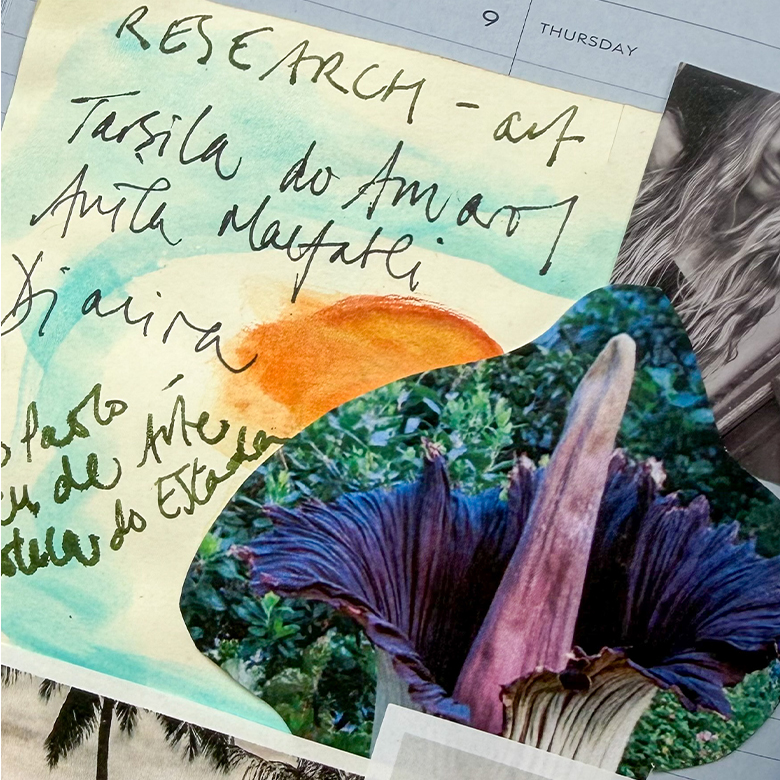 9 THURSDAY
RESEARCH - art
Tarsila do Amaral
Anita Malfatti
Djanira
Paolo
de Arte
do Estado